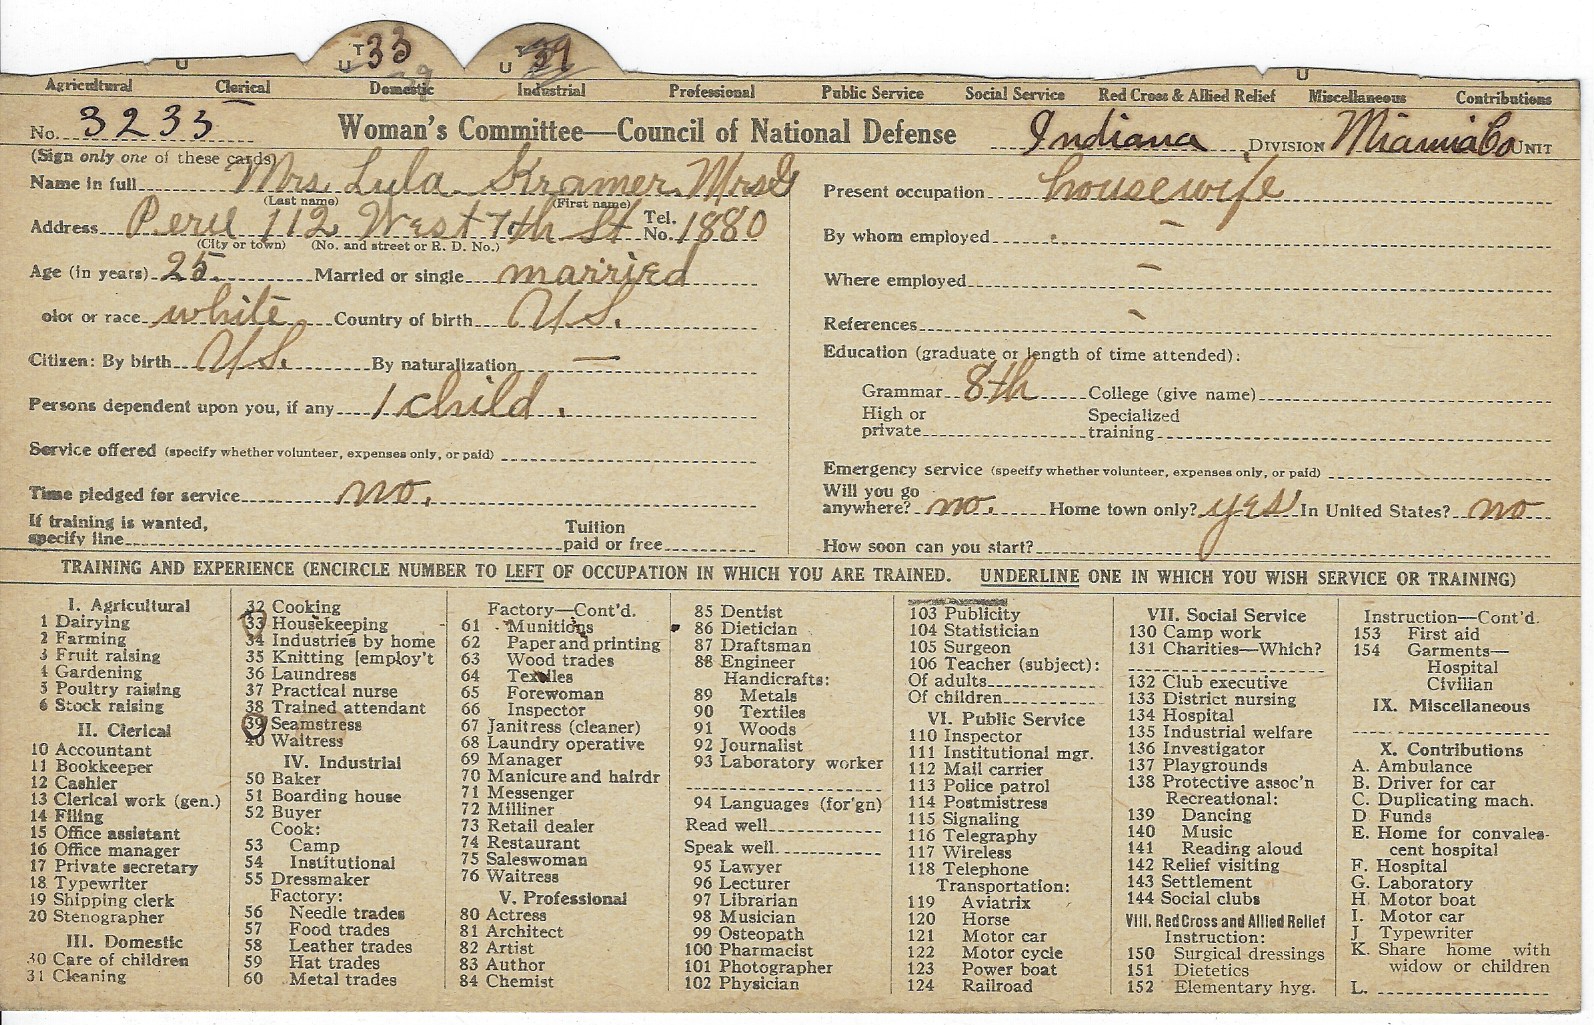 U T 33 U T 39 U
Agricultural Clerical Domestic Industrial Professional Public Service Social Service Red Cross & Allied Relief Miscellaneous Contributions
No. 3233 Woman's Committee—Council of National Defense Indiana DIVISION Miamia Co UNIT
(Sign only one of these cards)
Name in full Mrs Lula Kramer Mrs G
(Last name) (First name)
Address Peru 112 West 7th St Tel. No. 1880
(City or town) (No. and street or R. D. No.)
Age (in years) 25. Married or single married
olor or race white Country of birth U.S.
Citizen: By birth U.S. By naturalization —
Persons dependent upon you, if any 1 child.
Service offered (specify whether volunteer, expenses only, or paid)
Time pledged for service no.
If training is wanted,
specify line Tuition paid or free
Present occupation housewife
By whom employed –
Where employed –
References –
Education (graduate or length of time attended):
Grammar 8th College (give name)
High or private Specialized training
Emergency service (specify whether volunteer, expenses only, or paid)
Will you go anywhere? no. Home town only? yes In United States? no
How soon can you start?
TRAINING AND EXPERIENCE (ENCIRCLE NUMBER TO LEFT OF OCCUPATION IN WHICH YOU ARE TRAINED. UNDERLINE ONE IN WHICH YOU WISH SERVICE OR TRAINING)
I. Agricultural
1 Dairying
2 Farming
3 Fruit raising
4 Gardening
5 Poultry raising
6 Stock raising
II. Clerical
10 Accountant
11 Bookkeeper
12 Cashier
13 Clerical work (gen.)
14 Filing
15 Office assistant
16 Office manager
17 Private secretary
18 Typewriter
19 Shipping clerk
20 Stenographer
III. Domestic
30 Care of children
31 Cleaning
32 Cooking
33 Housekeeping
34 Industries by home
35 Knitting [employ't
36 Laundress
37 Practical nurse
38 Trained attendant
39 Seamstress
40 Waitress
IV. Industrial
50 Baker
51 Boarding house
52 Buyer
Cook:
53 Camp
54 Institutional
55 Dressmaker
Factory:
56 Needle trades
57 Food trades
58 Leather trades
59 Hat trades
60 Metal trades
Factory—Cont'd.
61 Munitions
62 Paper and printing
63 Wood trades
64 Textiles
65 Forewoman
66 Inspector
67 Janitress (cleaner)
68 Laundry operative
69 Manager
70 Manicure and hairdr
71 Messenger
72 Milliner
73 Retail dealer
74 Restaurant
75 Saleswoman
76 Waitress
V. Professional
80 Actress
81 Architect
82 Artist
83 Author
84 Chemist
85 Dentist
86 Dietician
87 Draftsman
88 Engineer
Handicrafts:
89 Metals
90 Textiles
91 Woods
92 Journalist
93 Laboratory worker
94 Languages (for'gn)
Read well
Speak well
95 Lawyer
96 Lecturer
97 Librarian
98 Musician
99 Osteopath
100 Pharmacist
101 Photographer
102 Physician
103 Publicity
104 Statistician
105 Surgeon
106 Teacher (subject):
Of adults
Of children
VI. Public Service
110 Inspector
111 Institutional mgr.
112 Mail carrier
113 Police patrol
114 Postmistress
115 Signaling
116 Telegraphy
117 Wireless
118 Telephone
Transportation:
119 Aviatrix
120 Horse
121 Motor car
122 Motor cycle
123 Power boat
124 Railroad
VII. Social Service
130 Camp work
131 Charities—Which?
132 Club executive
133 District nursing
134 Hospital
135 Industrial welfare
136 Investigator
137 Playgrounds
138 Protective assoc'n
Recreational:
139 Dancing
140 Music
141 Reading aloud
142 Relief visiting
143 Settlement
144 Social clubs
VIII. Red Cross and Allied Relief
Instruction:
150 Surgical dressings
151 Dietetics
152 Elementary hyg.
Instruction—Cont'd.
153 First aid
154 Garments—
Hospital
Civilian
IX. Miscellaneous
X. Contributions
A. Ambulance
B. Driver for car
C. Duplicating mach.
D Funds
E. Home for convales-
cent hospital
F. Hospital
G. Laboratory
H. Motor boat
I. Motor car
J Typewriter
K. Share home with
widow or children
L.